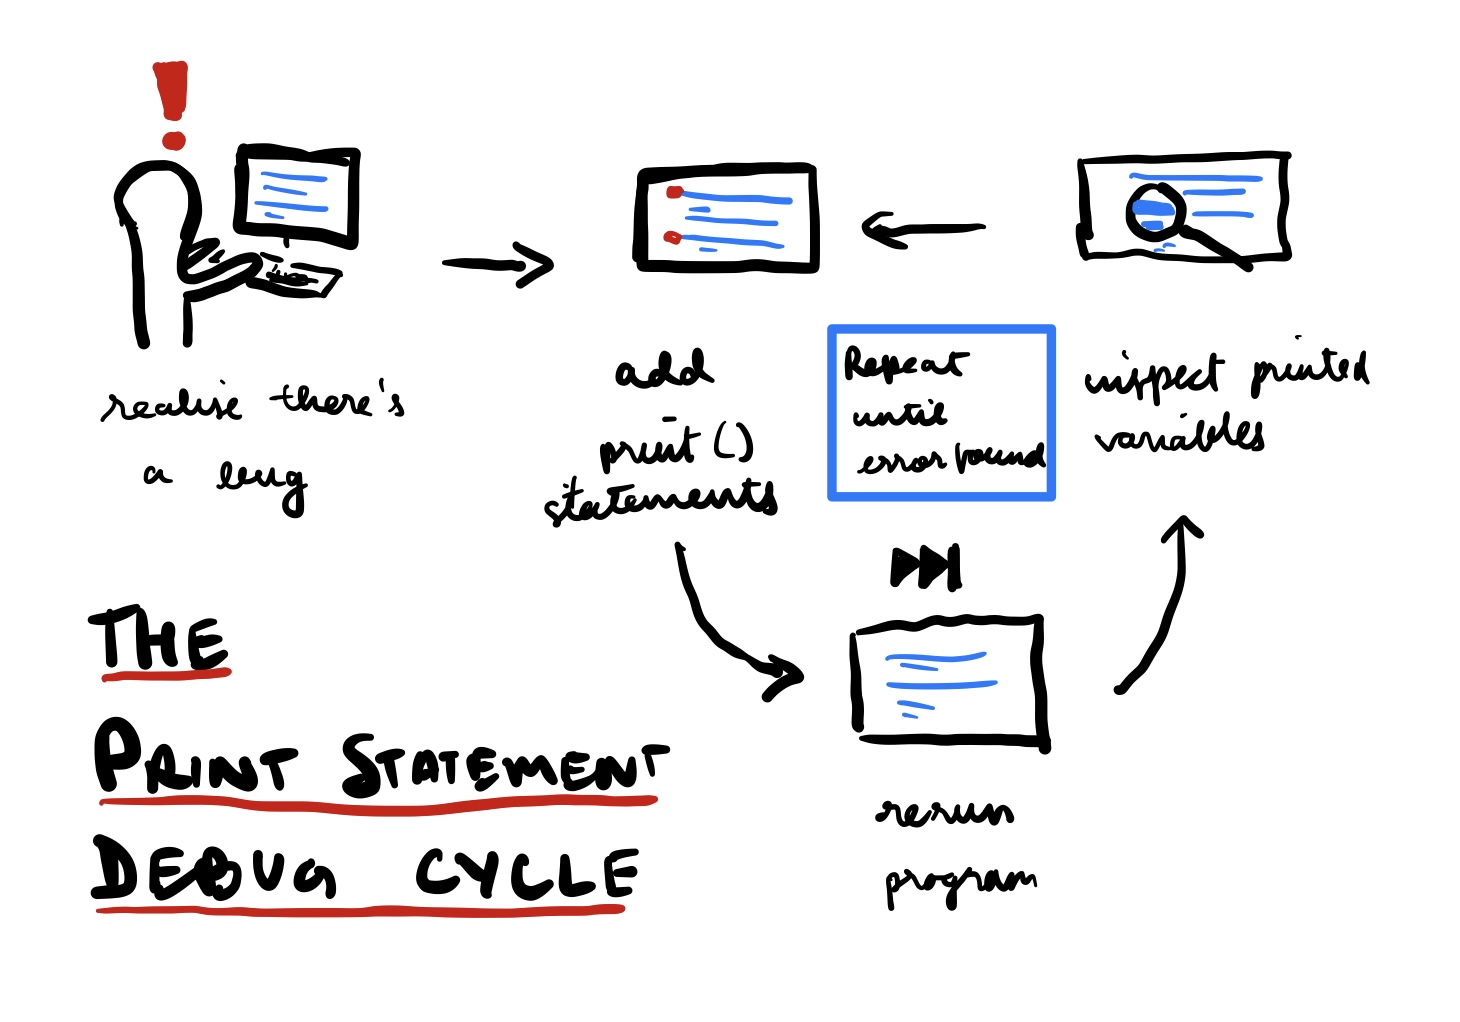 realise there's
a bug
add
print()
statements
Repeat
until
error found
inspect printed
variables
rerun
program
THE
PRINT STATEMENT
DEBUG CYCLE